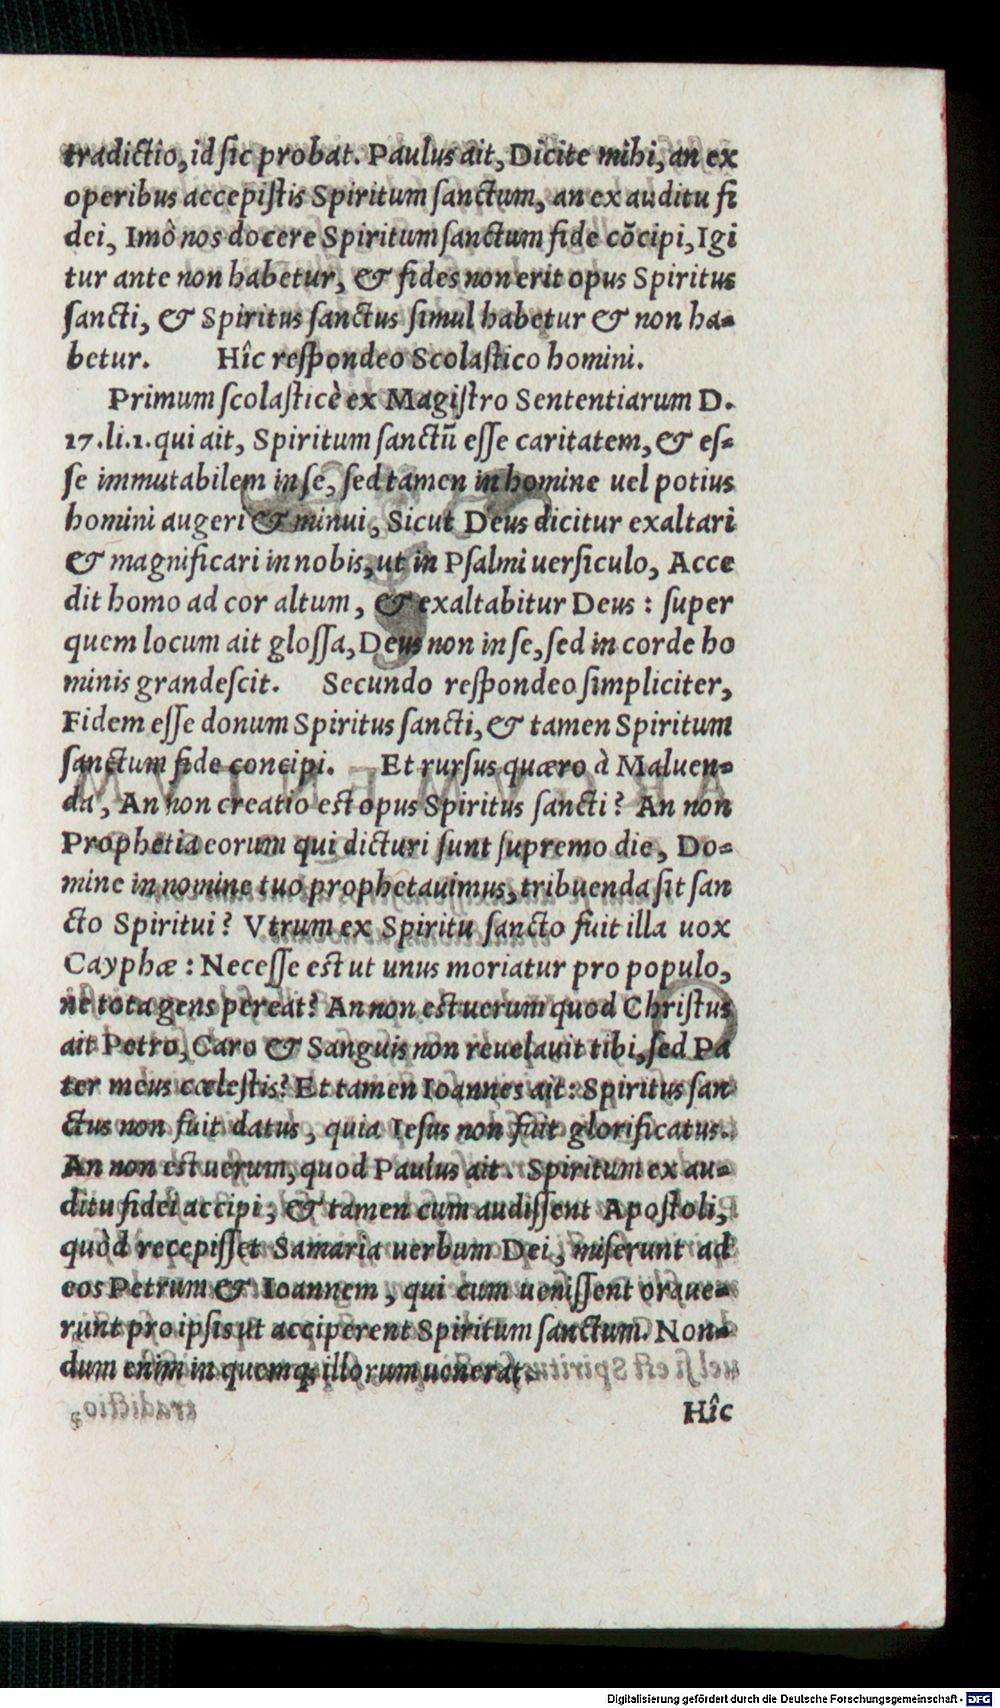 tradictio, id sic probat. Paulus ait, Dicite mihi, an ex
operibus accepistis Spiritum sanctum, an ex auditu fi
dei, Imô nos docere Spiritum sanctum fide cōcipi, Igi
tur ante non habetur, & fides non erit opus Spiritus
sancti, & Spiritus sanctus simul habetur & non ha-
betur. Hîc respondeo Scolastico homini.
Primum scolasticè ex Magistro Sententiarum D.
17.li.1. qui ait, Spiritum sanctū esse caritatem, & es-
se immutabilem in se, sed tamen in homine uel potius
homini augeri & minui, Sicut Deus dicitur exaltari
& magnificari in nobis, ut in Psalmi uersiculo, Acce
dit homo ad cor altum, & exaltabitur Deus : super
quem locum ait glossa, Deus non in se, sed in corde ho
minis grandescit. Secundo respondeo simpliciter,
Fidem esse donum Spiritus sancti, & tamen Spiritum
sanctum fide concipi. Et rursus quæro à Maluen-
da, An non creatio est opus Spiritus sancti? An non
Prophetia eorum qui dicturi sunt supremo die, Do-
mine in nomine tuo prophetauimus, tribuenda sit san
cto Spiritui? Vtrum ex Spiritu sancto fuit illa uox
Cayphæ : Necesse est ut unus moriatur pro populo,
ne tota gens pereat? An non est uerum quod Christus
ait Petro, Caro & Sanguis non reuelauit tibi, sed Pa
ter meus cœlestis? Et tamen Ioannes ait: Spiritus san
ctus non fuit datus, quia Iesus non fuit glorificatus.
An non est uerum, quod Paulus ait. Spiritum ex au-
ditu fidei accipi, & tamen cum audissent Apostoli,
quòd recepisset Samaria uerbum Dei, miserunt ad
eos Petrum & Ioannem, qui cum uenissent oraue-
runt pro ipsis ut acciperent Spiritum sanctum. Non-
dum enim in quemq; illorum uenerat.
Hîc
Digitalisierung gefördert durch die Deutsche Forschungsgemeinschaft - DFG